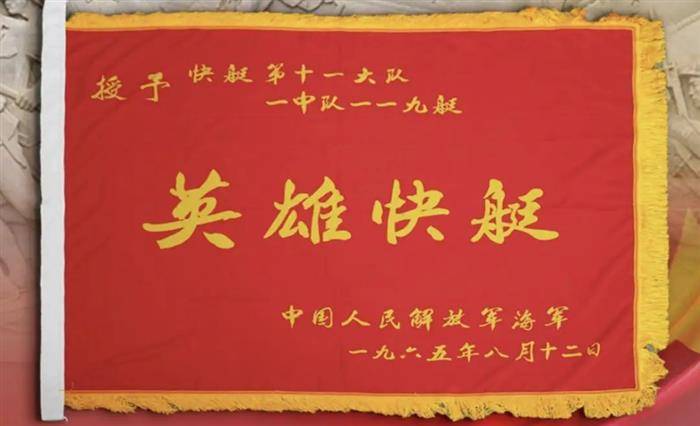 授予 快艇第十一大队
一中队一一九艇
英雄快艇
中国人民解放军海军
一九六五年八月十二日